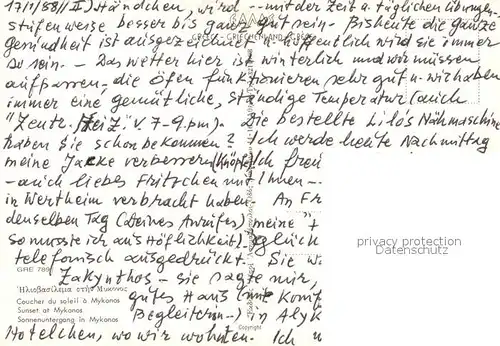 17/1/88/II) Händchen, wird -- mit der Zeit u. täglichen übungen-
stufenweise besser bis ganz gut sein. - Bis heute die ganze
gesundheit ist ausgezeichnet u. hoffentlich wird sie immer
so sein. - Das wetter hier ist winterlich und wir müssen
aufpassen, die öfen funktionieren sehr gut u. wir haben
immer eine gemütliche, ständige Temperatur (auch
"Zentr. Heiz." v. 7-9. pm). Die bestellte Lilo's Nähmaschine
haben Sie schon bekommen? Ich werde heute Nachmittag
meine Jacke verbessern (Knöpfe) Ich freu
- auch liebes Fritzchen mit Ihnen -
in Wertheim verbracht haben. An Fr
denselben Tag (deines Anrufes) meine
so musste ich aus Höflichkeit glück
telefonisch ausgedrückt. Sie w
Zakynthos - sie sagte mir,
gutes Haus (mit Komf
Begleiterin -) in Alyk
Hotelchen, wo wir wohnten. Ich
GRE 789
Ἡλιοβασίλεμα στὴ Μύκονο
Coucher du soleil à Mykonos
Sunset at Mykonos
Sonnenuntergang in Mykonos
Copyright
privacy protection
www.oldthing.de